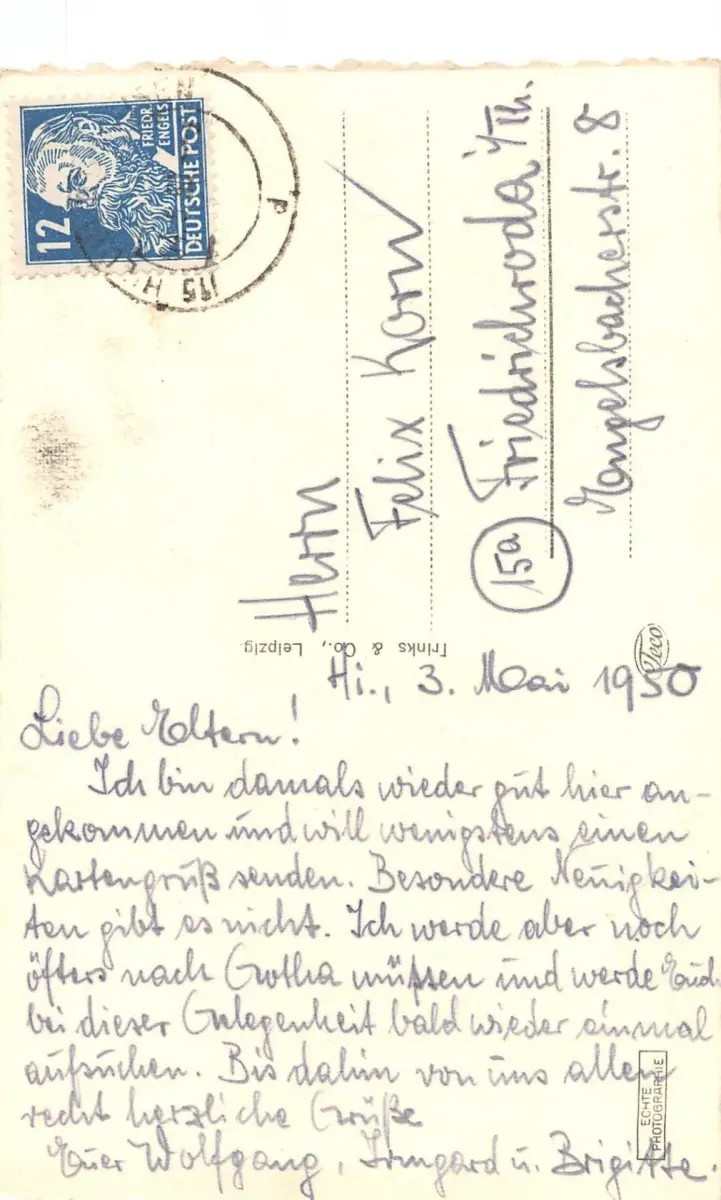 12
FRIEDR.
ENGELS
DEUTSCHE POST
Herrn
Felix Korn
15a Friedrichroda i/Th.
Engelsbacherstr. 8
Trinks & Co., Leipzig.
Teco
Hi., 3. Mai 1950
Liebe Eltern!
Ich bin damals wieder gut hier an-
gekommen und will wenigstens einen
Kartengruß senden. Besondere Neuigkei-
ten gibt es nicht. Ich werde aber noch
öfters nach Gotha müßen und werde Euch
bei dieser Gelegenheit bald wieder einmal
aufsuchen. Bis dahin von uns allen
recht herzliche Grüße
Euer Wolfgang, Irmgard u. Brigitte.
ECHTE
PHOTOGRAPHIE